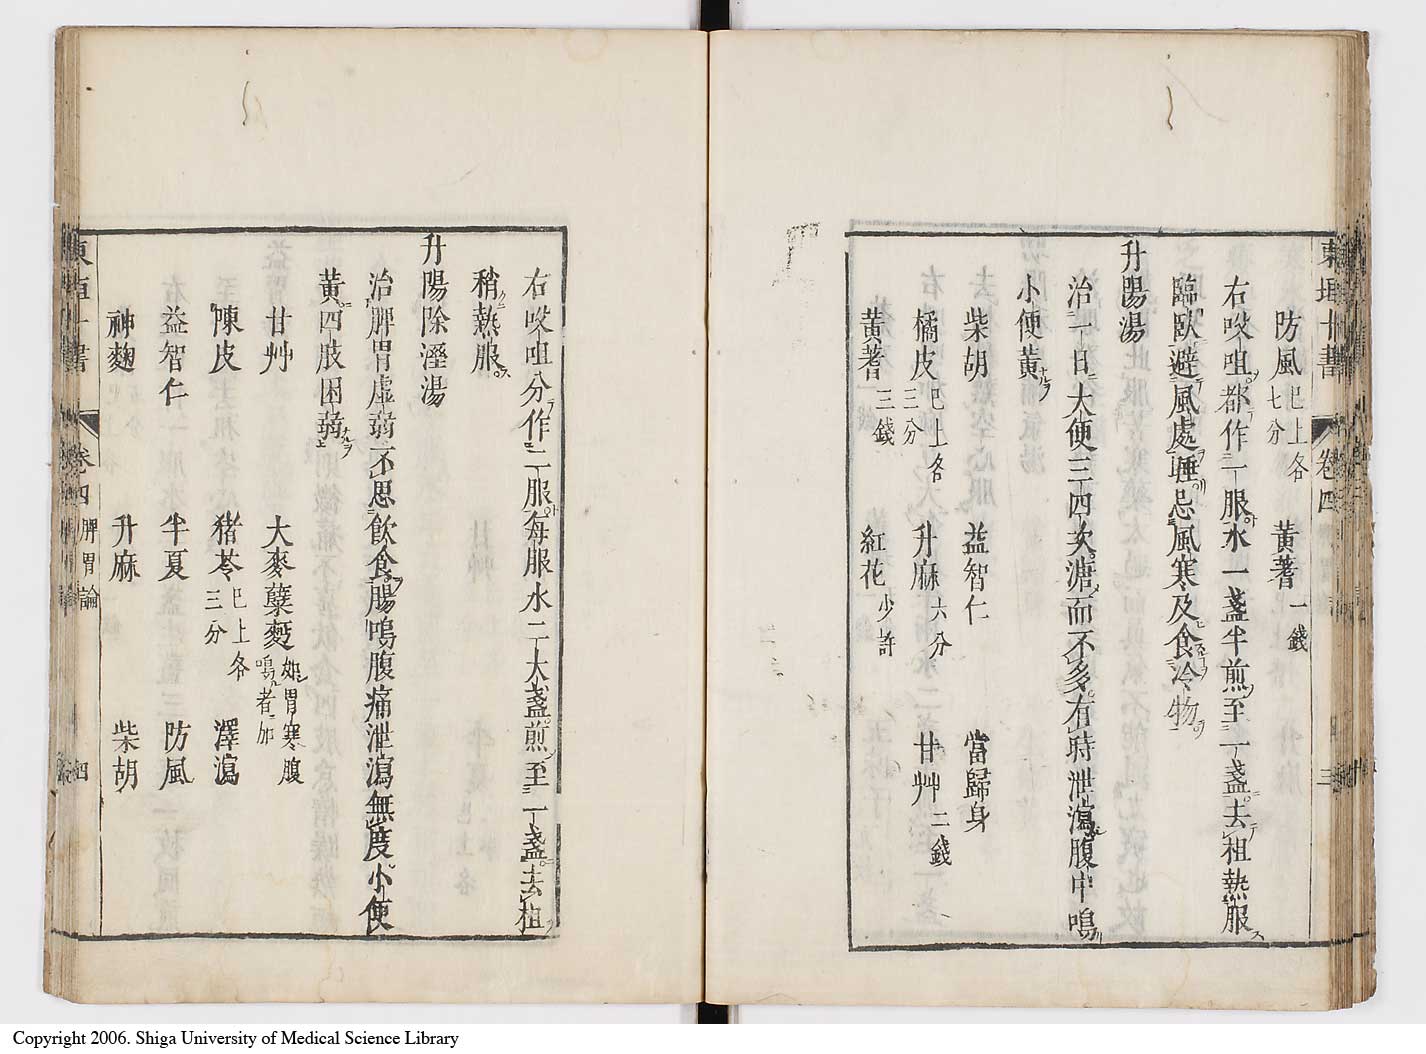 東垣十書 卷四 三
防風 七分 已上各 黄耆 一錢
右㕮咀都作一服水一盞半煎至一盞去柤熱服
臨臥避風處睡忌風寒及食冷物
升陽湯
治一日大便三四次溏而不多有時泄瀉腹中鳴
小便黄
柴胡 益智仁 當歸身
橘皮 已上各三分 升麻 六分 甘艸 二錢
黄耆 三錢 紅花 少許
右㕮咀分作二服每服水二大盞煎至一盞去柤
稍熱服
升陽除溼湯
治脾胃虛弱不思飲食腸鳴腹痛泄瀉無度小便
黄四肢困弱
甘艸 大麥蘗麪 如胃寒腹鳴者加
陳皮 猪苓 已上各三分 澤瀉
益智仁 半夏 防風
神麴 升麻 柴胡
東垣十書 卷四 脾胃論 四
Copyright 2006. Shiga University of Medical Science Library